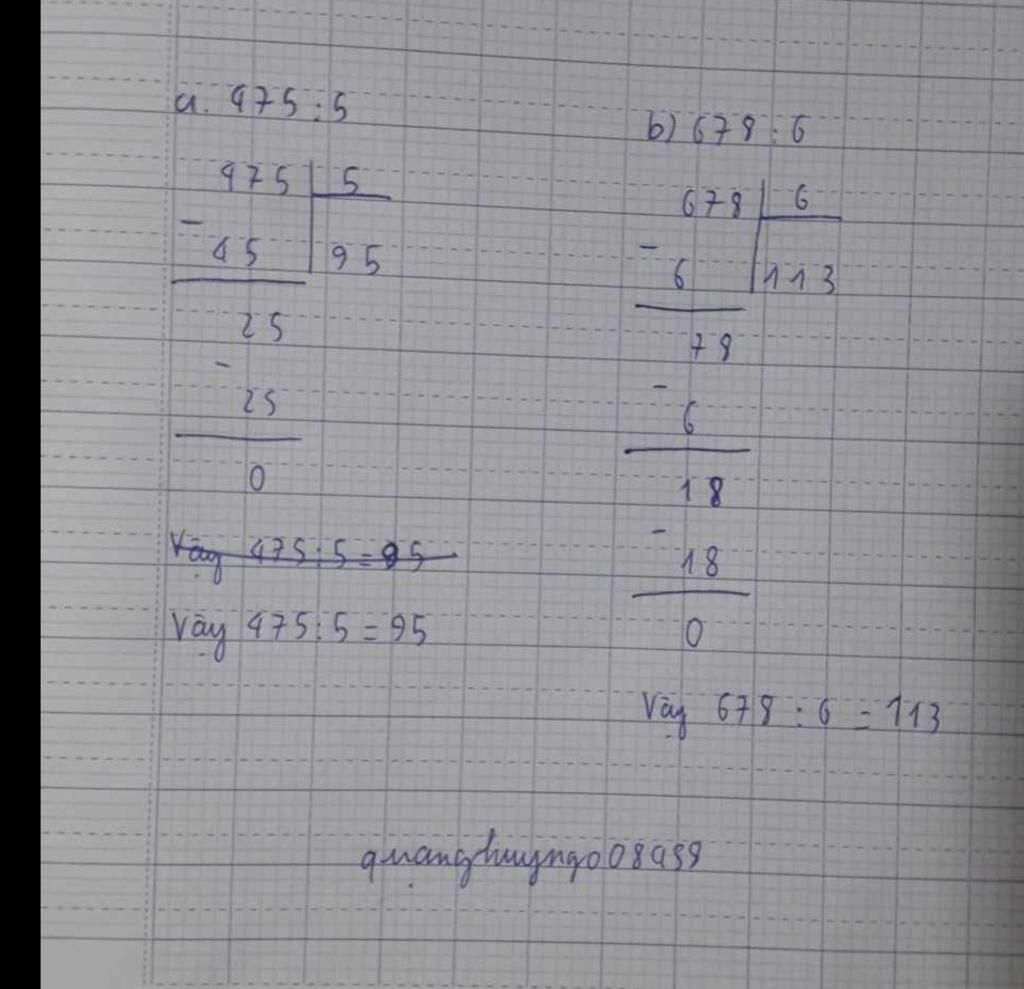 a. 475 : 5
475 5
-
45 95
25
-
25
0
Vậy 475 : 5 = 95
Vậy 475 : 5 = 95
b) 678 : 6
678 6
-
6 113
78
-
6
18
-
18
0
Vậy 678 : 6 = 113